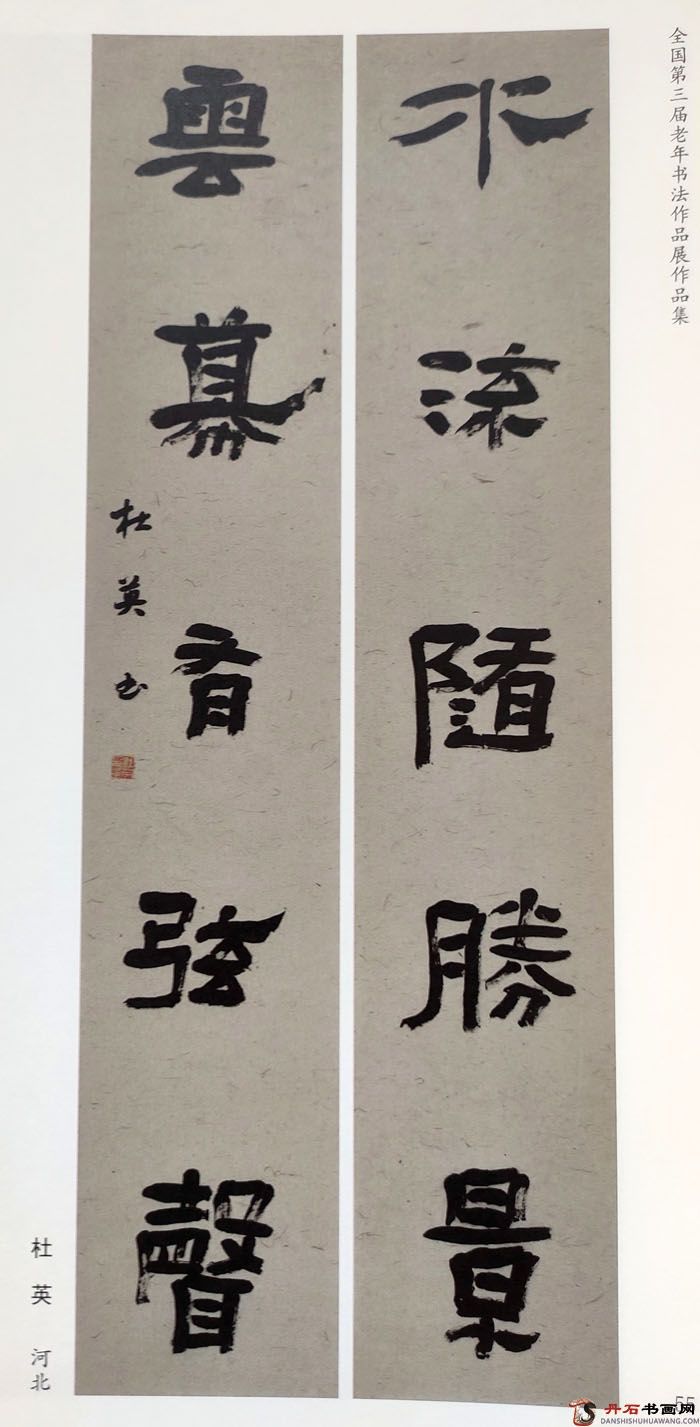 全国第三届老年书法作品展作品集
水流隨勝景
雲幕有弦聲
杜英书
杜英 河北
55
丹石书画网
DANSHISHUHUAWANG.COM